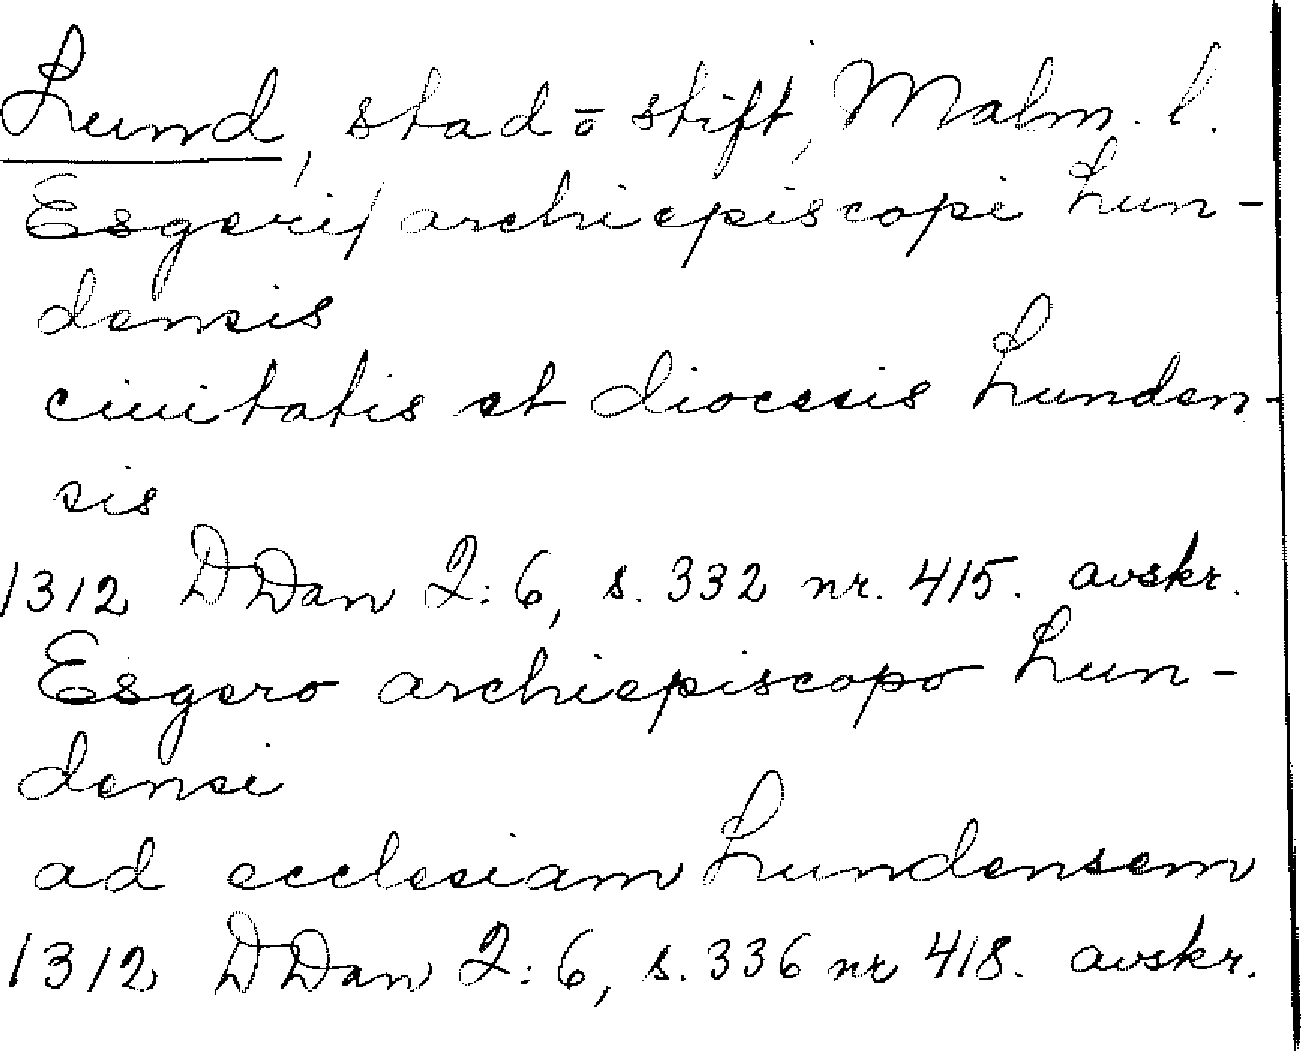 Lund, stad o stift, Malm. l.
Esgeri/ archiepiscopi Lun-
densis
ciuitatis et diocesis Lunden-
sis
1312 DDan 2:6, s. 332 nr. 415. avskr.
Esgero archiepiscopo Lun-
densi
ad ecclesiam Lundensem
1312 DDan 2:6, s. 336 nr 418. avskr.